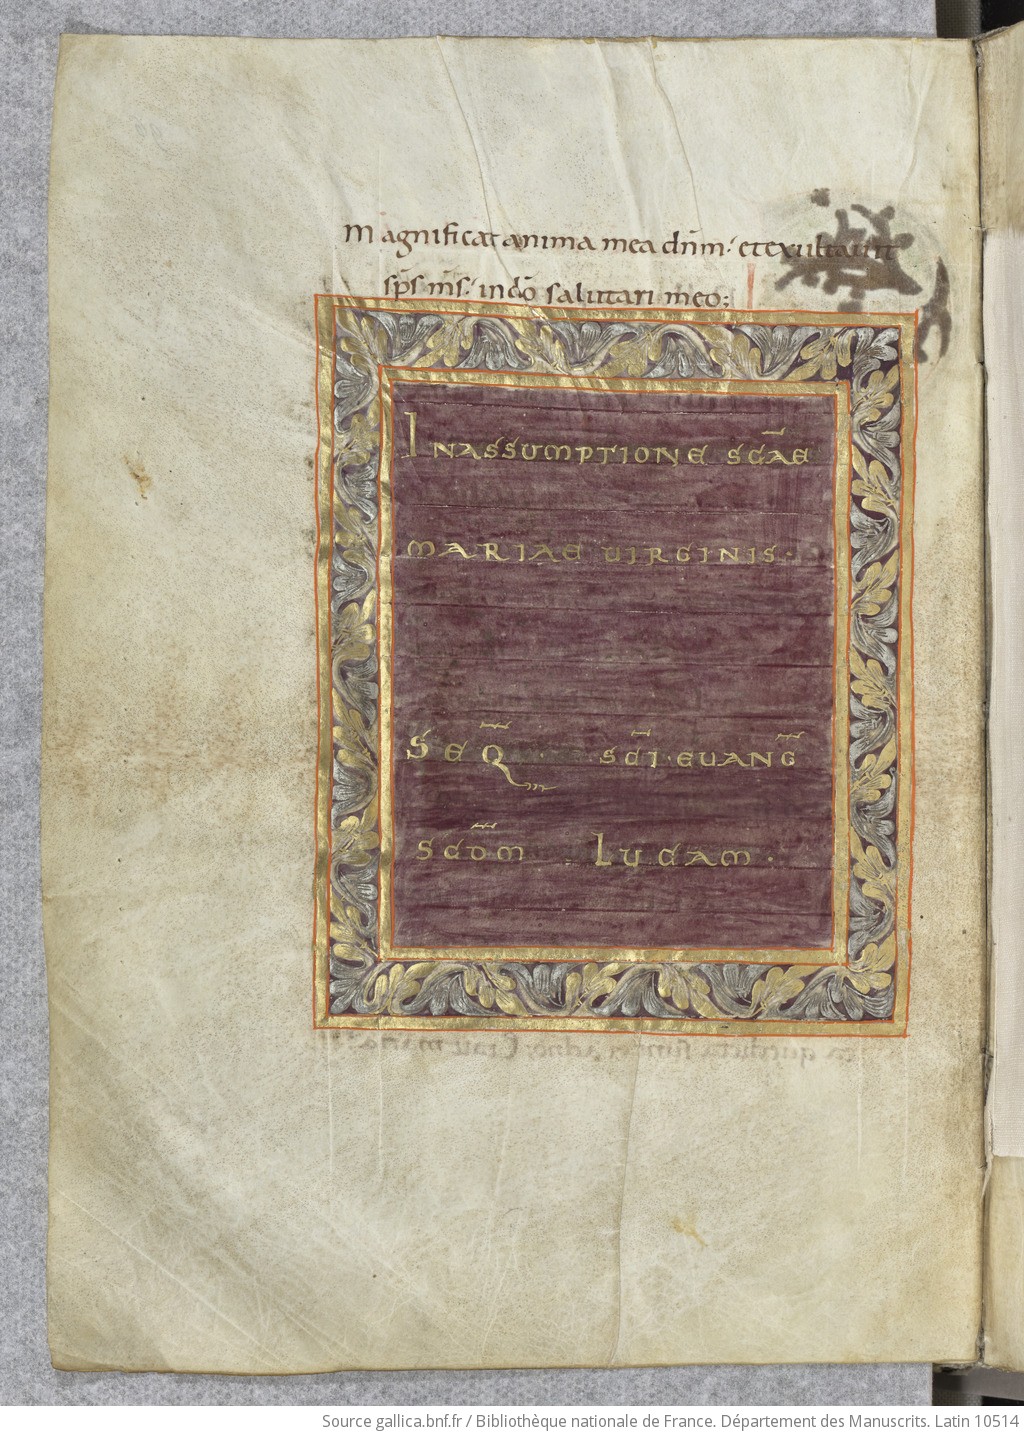 Magnificat anima mea dnm̅· et exultauit
sp̅s m̅s· in do̅ salutari meo;
IN ASSUMPTIONE SC̅AE
MARIAE UIRGINIS·
SEQ̅ SC̅I·EUANG̅
SCD̅M LUCAM·
Source gallica.bnf.fr / Bibliothèque nationale de France. Département des Manuscrits. Latin 10514